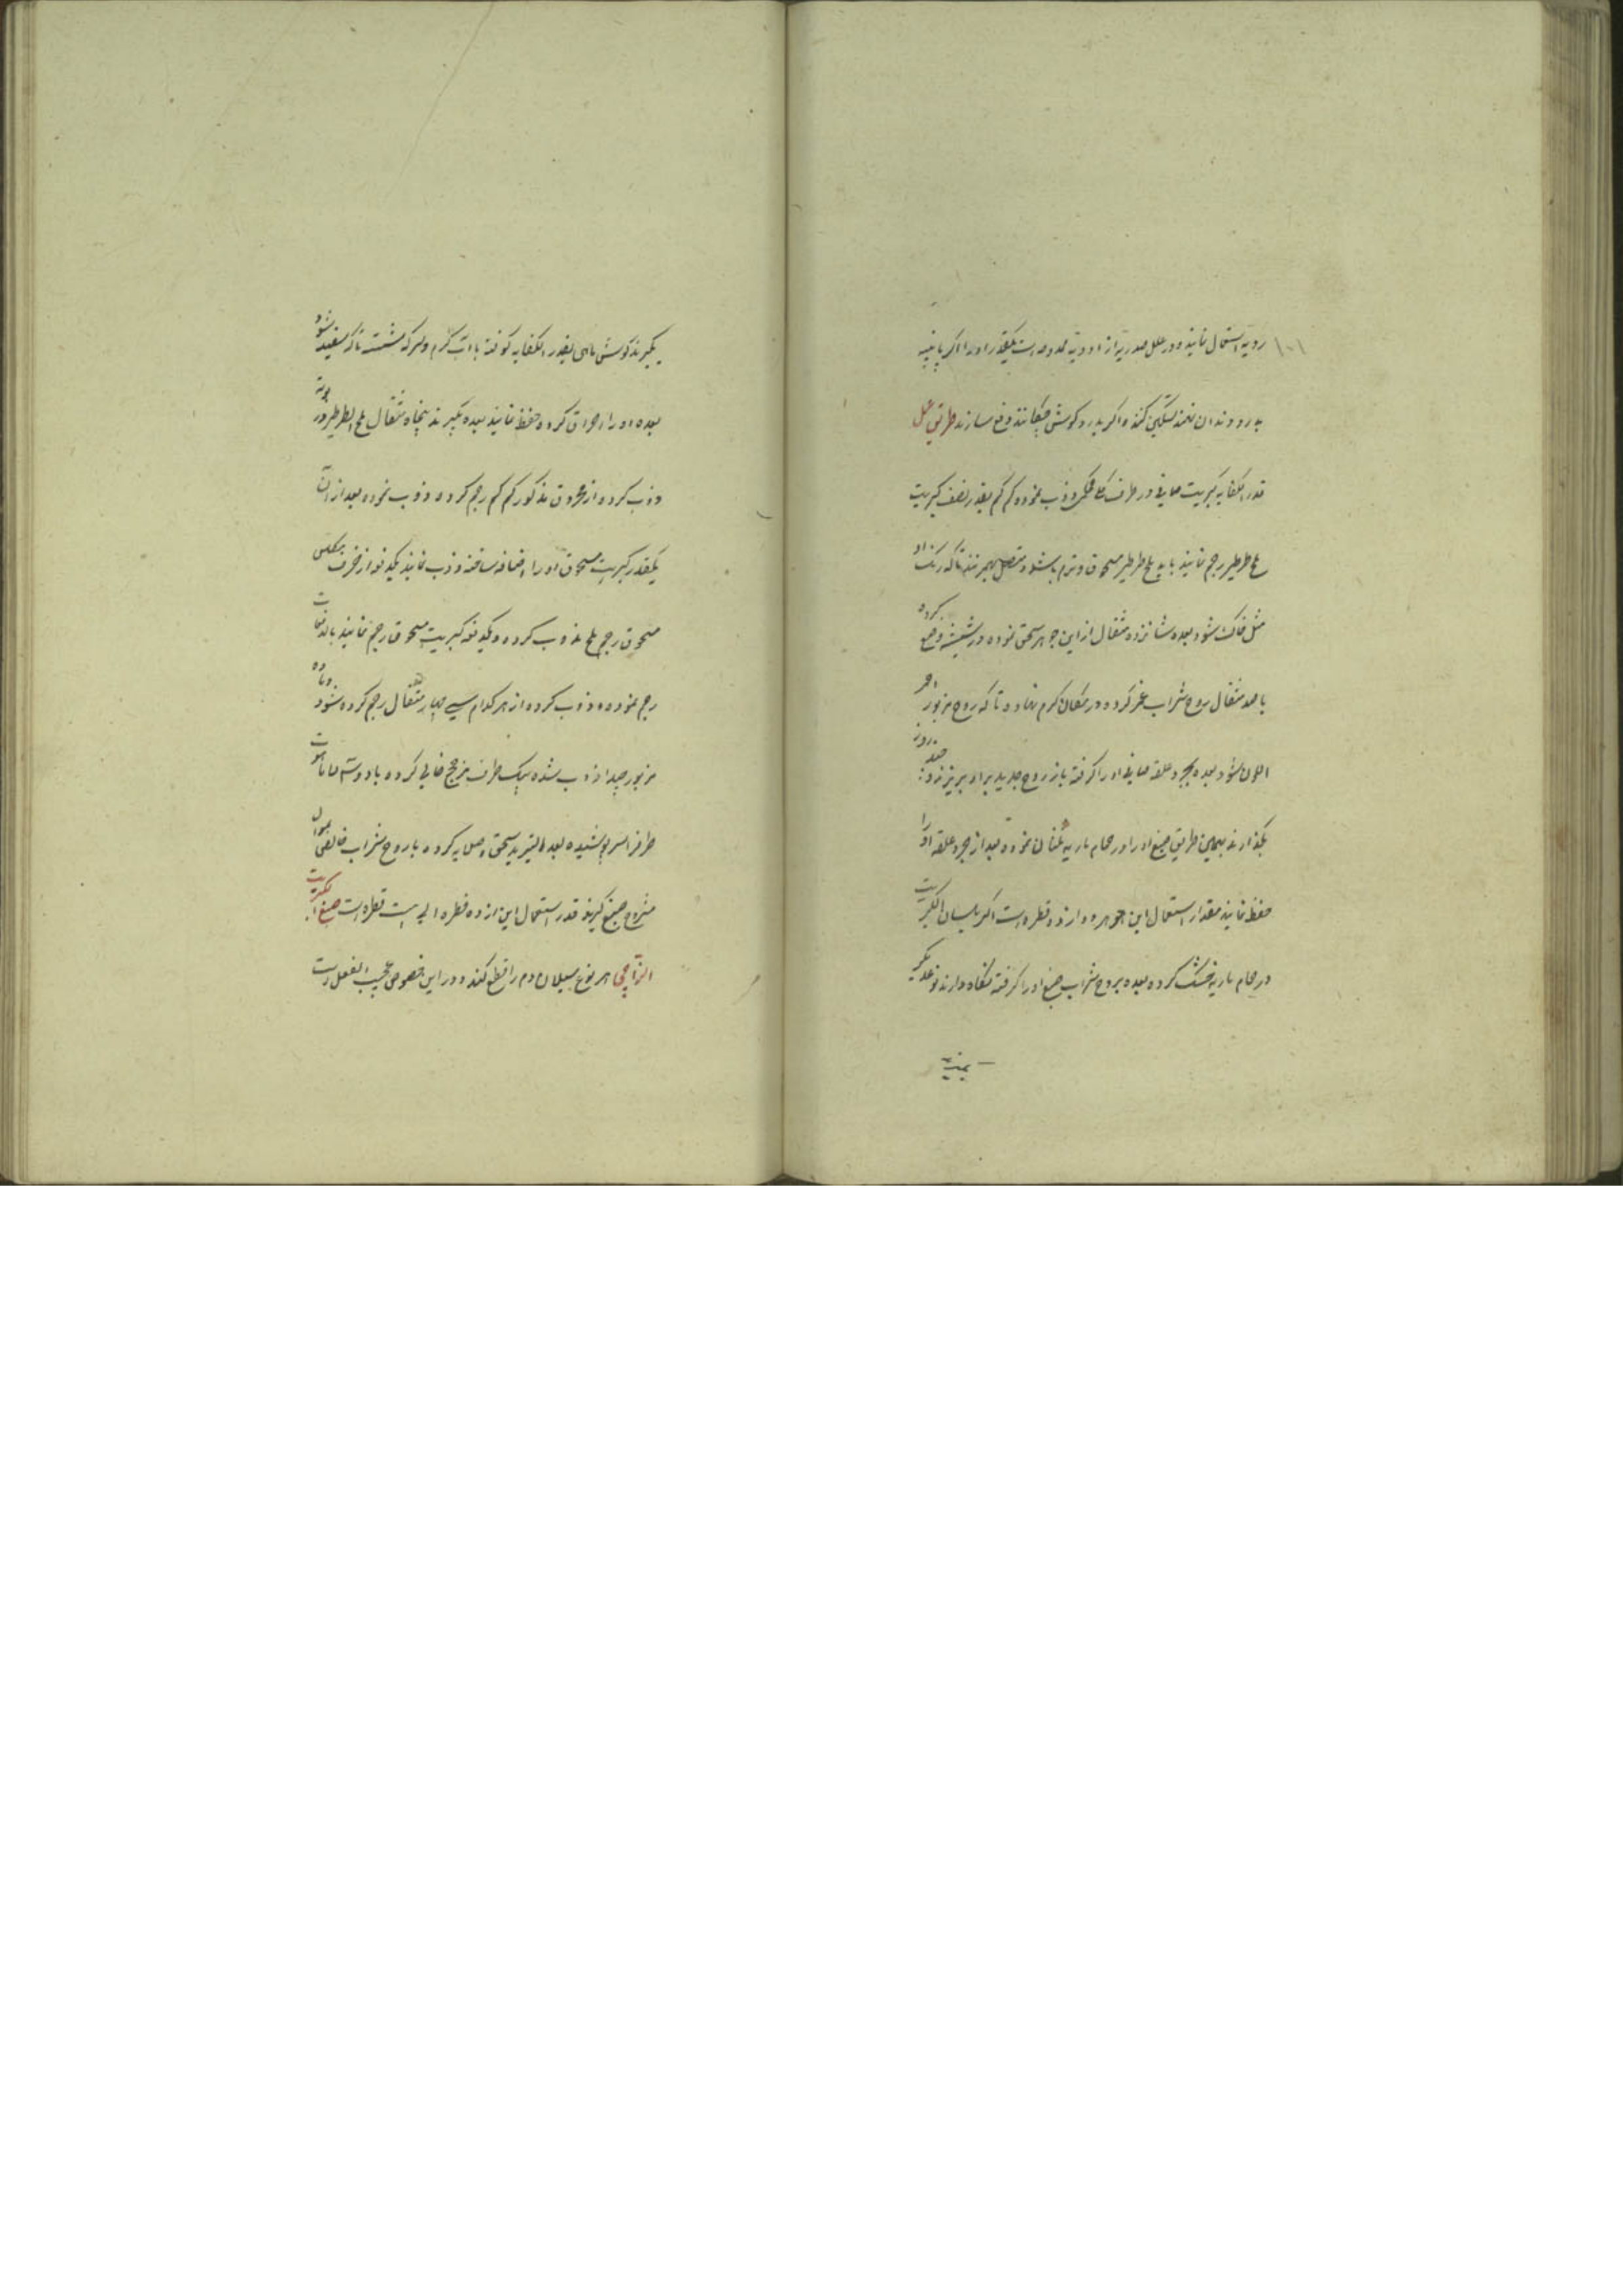 ۱۰۱
رویه استعمال نمایند و در علل صدریه از ادویه ممدوحه است یکقدر او را اگر با پنبه
بدرد دندان نهند تسکین کند و اگر بدرد گوش چکانند دفع سازند طریق عمل
قدر الکفایه کبریت صافی در ظرف ذوب نموده کم کم بقدر نصف کبریت
ملح طرطیر رجم نمایند باید ملح طرطیر مسحوق و نرم باشد و متصل بهم زنند تا که رنک او
مثل خاک شود بعده شانزده مثقال از این جوهر سحق نموده در شیشه وضع کرده
با صد مثقال روح شراب غمر کرده در مکان گرم نهاده تا که روح مزبور احمر
اللون شود بعده بجر و علقه صافی او را گرفته باز روح جدید بر او بریزند چند روز
بگذارند بهمین طریق صبغ او را در حمام ماریه نموده بعد از جر و علقه او را
حفظ نمایند مقدار استعمال این جوهر دوازده قطره است اگر بلسان الکبریت
در حمام ماریه خشک کرده بعده بروح شراب صبغ او را گرفته نگاه دارند نوعدیگر
یگیرند
یگیرند گوش ماهی بقدر الکفایه کوفته با آب گرم و سرکه شسته تا که سفید شود
بعده او را احراق کرده حفظ نمایند بعده بگیرند پنجاه مثقال ملح الطرطیر در بوته
ذوب کرده از محروق مذکور کم کم رجم کرده ذوب نموده بعد از آن
یکقدر کبریت مسحوق او را اضافه ساخته ذوب نمایند یکدفعه از خزف مکلس
مسحوق رجم ملح مذوب کرده و یکدفعه کبریت مسحوق رجم نمایند بالدفعات
رجم نموده ذوب کرده از هر کدام سی چهار مثقال رجم کرده شود و ماده
مزبور جیدا ذوب شده بیک ظرف مزجج خالی کرده با دوستی ماتا
ظرفرا سر پوشیده بعد التبرید سحق و صلایه کرده با روح شراب خالص بمنوال
مشروح صبغ گیرند قدر استعمال این از ده قطره الی بیست قطره است صبغ الکبریت
الزاجی هر نوع سیلان دم را قطع کند و در این خصوص عجیب الفعل است